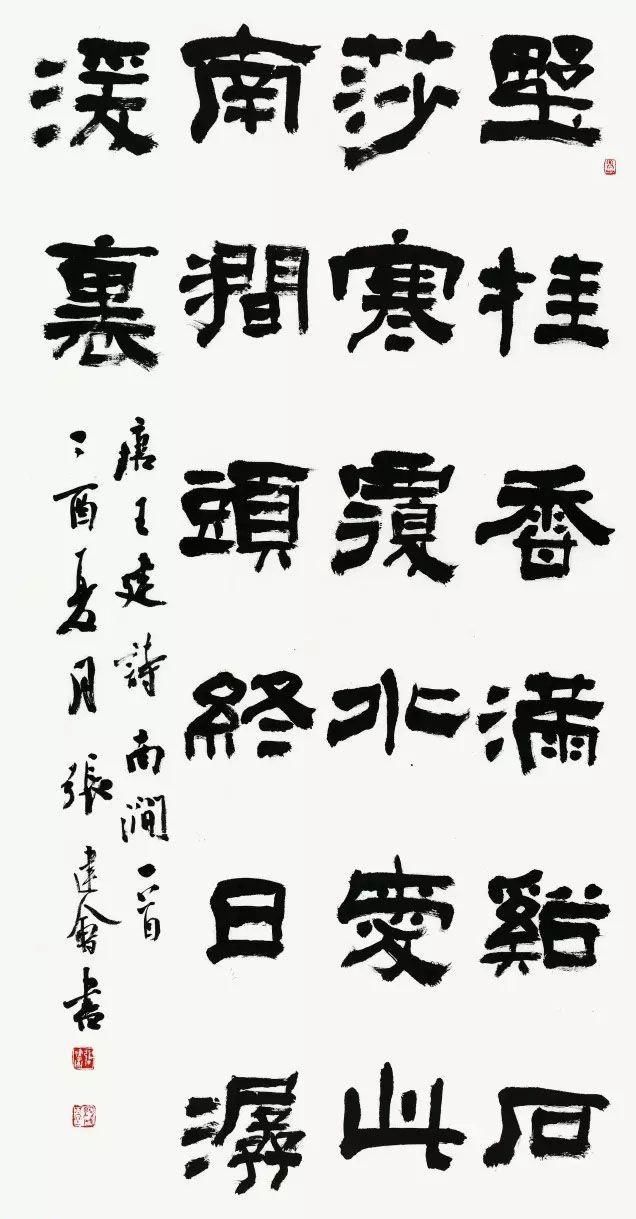 墅桂香滿谿石
莎寒覆水愛此
南澗頭終日潺
湲裏
唐王建詩南澗一首
丁酉夏月張建會書